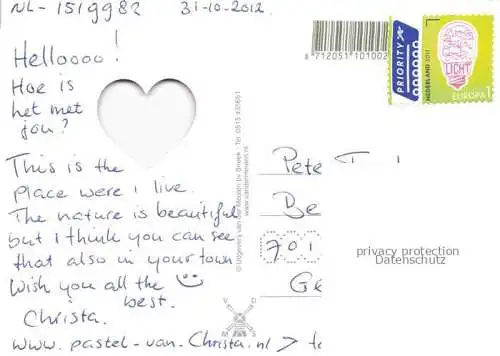 NL-1519982 31-10-2012
Helloooo!
Hoe is
het met
jou?
This is the
place were i live.
The nature is beautiful
but I think you can see
that also in your town
Wish you all the
best.
Christa.
www.pastel-van-Christa.nl >
8 712051 101002
PRIORITY
NEDERLAND 2011
LICHT
EUROPA 1
© Uitgeverij van der Meulen bv Sneek Tel. 0515
www.vandermeulen.nl
V D
M S
Pete
Be
701
Ge
privacy protection
Datenschutz